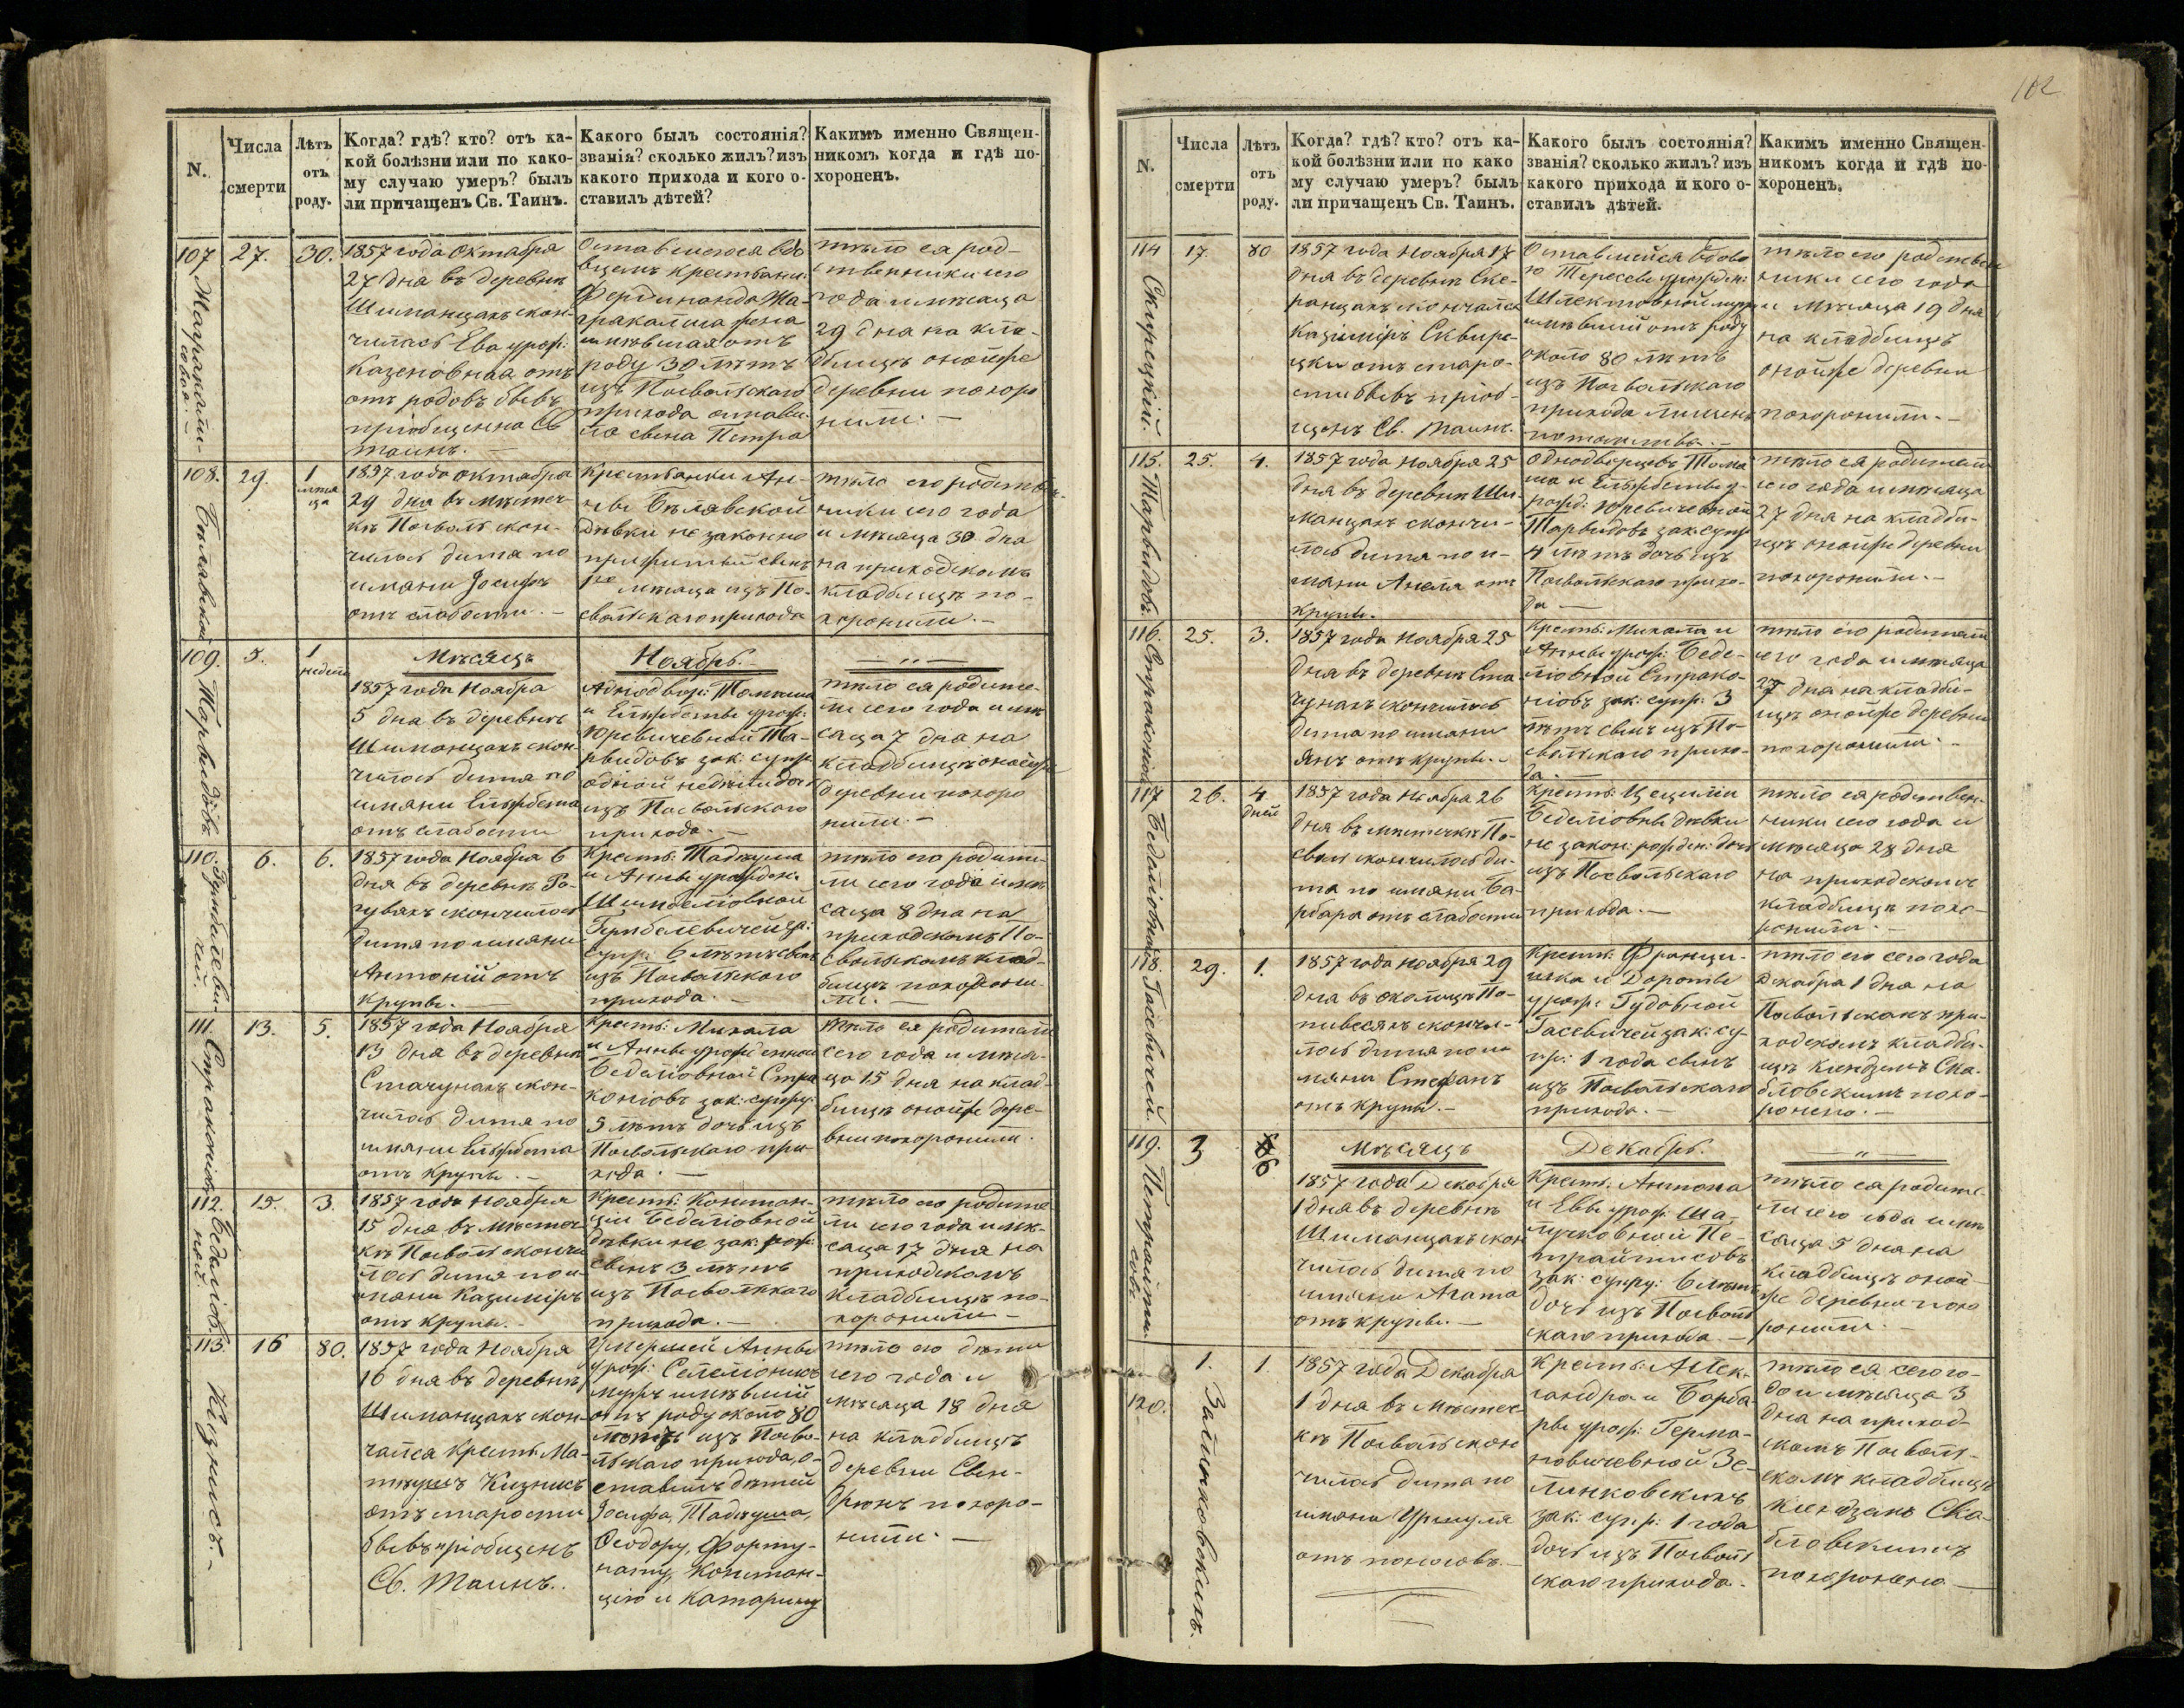 N.
Числа
смерти
Лѣтъ
отъ
роду.
Когда? гдѣ? кто? отъ ка-
кой болѣзни или по како-
му случаю умеръ? былъ
ли причащенъ Св. Таинъ.
Какого былъ состоянія?
званія? сколько жилъ? изъ
какого прихода и кого о-
ставилъ дѣтей?
Какимъ именно Священ-
никомъ когда и гдѣ по-
хороненъ.
107
27.
30.
1857 года Октября
27 дня въ деревнѣ
Шиманцахъ скон-
чилась Ева урож:
отъ родовъ бывъ
пріобщенна Св
таинъ. —
Оставшегося вдо
вцемъ крестьянин:
Фердинанда
жена
имѣвшая отъ
роду 30 лѣтъ
изъ Посвольскаго
прихода остави-
ла сына Петра
тѣло ея род-
ственники сего
года и мѣсяца
29 дня на кла-
дбищѣ онойже
деревни похоро
нили. —
108.
29.
1
мѣся
ца
1857 года октября
29 дня въ мѣстеч-
къ Посволѣ скон-
чилось дитя по
имяни Іосифъ
отъ слабости. —
Крестьянки Ан-
ны Бѣлявской
Дѣвки не законно
прижитый сынъ
1го мѣсяца изъ По-
свольскаго прихода
тѣло его родствен-
ники сего года
и мѣсяца 30 дня
на приходскомъ
кладбищѣ по-
хоронили. —
109.
5.
1
недели
Мѣсяцъ
Ноябрь.
— „ —
1857 года Ноября
5 дня въ деревнѣ
Шиманцахъ скон-
чилось дитя по
имяни Ельжбета
отъ слабости
Аднодвор: Томаша
и Ельжбеты урож:
Юревичевной Та-
рвидовъ зак: супр:
одной недѣли дочь
изъ Посвольскаго
прихода. —
тѣло ея родите-
ли сего года и мѣ
сяца 7 дня на
кладбищѣ онойже
деревни похоро
нили. —
110.
6.
6.
1857 года Ноября 6
дня въ деревнѣ
скончилось
дитя по имяни
Антоній отъ
крупы. —
Крест: Тадеуша
и Анны урожден:
6 лѣтъ сынъ
изъ Посвольскаго
прихода. —
тѣло его родите-
ли сего года и мѣ
сяца 8 дня на
приходскомъ По-
свольскомъ клад-
бищѣ похорони-
ли. —
111.
13.
5.
1857 года Ноября
13 дня въ деревнѣ
Стачунахъ скон-
чилось дитя по
имяни Ельжбета
отъ крупы. —
Крест: Михала
и Анны урожденной
Бедаліовной Стра
коніовъ зак: супру:
5 лѣтъ дочь изъ
Посвольскаго при-
хода. —
тѣло ея родители
сего года и мѣся-
ца 15 дня на клад-
бищѣ онойже дере-
вни похоронили.
112.
15.
3.
1857 года Ноября
15 дня въ мѣстеч-
къ Посволѣ скончи
лось дитя по и-
мяни Казиміръ
отъ крупы. —
Крест: Констан-
ціи Бедаліовной
дѣвки не зак: рож:
сынъ 3 лѣтъ
изъ Посвольскаго
прихода. —
тѣло его родите
ли сего года и мѣ-
сяца 17 дня на
приходскомъ
кладбищѣ по-
хоронили —
113.
16
80.
Кизнисъ. —
1857 года Ноября
16 дня въ деревнѣ
Шиманцахъ скон-
чался крест: Ма-
теушъ Кизнисъ
отъ старости
бывъ пріобщенъ
Св. Таинъ.
Умершей Анны
урож:
мужъ имѣвшій
отъ роду около 80
лѣтъ изъ Посво-
льскаго прихода, о-
ставилъ дѣтей
Іосифа, Тадеуша,
Ѳеодору, Форту-
нату, Констан-
цію и Катарину
тѣло его дѣти
сего года и
мѣсяца 18 дня
на кладбищѣ
деревни
похоро-
нили. —
102
N.
Числа
смерти
Лѣтъ
отъ
роду.
Когда? гдѣ? кто? отъ ка-
кой болѣзни или по како
му случаю умеръ? былъ
ли причащенъ Св. Таинъ.
Какого былъ состоянія?
званія? сколько жилъ? изъ
какого прихода и кого о-
ставилъ дѣтей.
Какимъ именно Священ-
никомъ когда и гдѣ по-
хоронень.
114
17.
80
1857 года Ноября 17
дня въ деревнѣ Ске-
ранцахъ скончался
Казиміръ
отъ старо-
сти бывъ пріоб-
щенъ Св. Таинъ.
Оставшейся вдово
ю Тересы урожден:
мужъ
имѣвшій отъ роду
около 80 лѣтъ
изъ Посвольскаго
прихода лишенъ
потомства. —
тѣло его родствен
ники сего года
и мѣсяца 19 дня
на кладбищѣ
онойже деревни
похоронили. —
115.
25.
4.
Тарвидовъ.
1857 года Ноября 25
дня въ деревнѣ Ши-
манцахъ скончи-
лось дитя по и-
мяни Анеля отъ
крупы.
Однодворцевъ Тома
ша и Ельжбеты у-
рожд: Юревичевной
Тарвидовъ зак: супр
4 лѣтъ дочь изъ
Посвольскаго прихо-
да —
тѣло ея родители
сего года и мѣсяца
27 дня на кладби-
щѣ онойже деревни
похоронили. —
116.
25.
3.
1857 года Ноября 25
дня въ деревнѣ Ста
чунахъ скончилось
дитя по имяни
Янъ отъ крупы. —
Крест: Михала и
Анны урож: Беда-
ліовной Страко-
ніовъ зак: супр: 3
лѣтъ сынъ изъ По-
свольскаго прихо-
да. —
тѣло его родители
сего года и мѣсяца
27 дня на кладби-
щѣ онойже деревни
похоронили. —
117.
26.
4
дней
1857 года Ноября 26
дня въ мѣстечкѣ По-
сволѣ скончилось ди-
тя по имяни Ба-
рбара отъ слабости
Крест: Цециліи
Бедаліовны дѣвки
не закон: рожден: дочь
изъ Посвольскаго
прихода. —
тѣло ея родствен-
ники сего года и
мѣсяца 28 дня
на приходскомъ
кладбищѣ похо-
ронили. —
118.
29.
1.
1857 года Ноября 29
дня въ околицѣ По-
скончи-
лось дитя по и
мяни Стефанъ
отъ крупы. —
Крест: Франци-
шка и Дороты
урож: Гудовной
Гасевичей зак: су-
пр: 1 года сынъ
изъ Посвольскаго
прихода. —
тѣло его сего года
Декабря 1 дня на
Посвольскомъ при-
ходскомъ кладби-
щѣ Ксендзомъ Ска-
бловскимъ похо-
ронено. —
119.
3
6
Мѣсяцъ
Декабрь.
— „ —
1857 года Декабря
1 дня въ деревнѣ
Шиманцахъ скон
чилось дитя по
имяни Агата
отъ крупы. —
Крест: Антона
и Евы урож:
зак: супру: 6 лѣтъ
дочь изъ Посволь
скаго прихода. —
тѣло ея родите-
ли сего года и мѣ
сяца 5 дня на
кладбищѣ оной-
же деревни похо
ронили. —
120.
1.
1.
1857 года Декабря
1 дня въ мѣстеч-
къ Посволѣ скон
чилось дитя по
имяни Уршуля
отъ поносовъ. —
Крест: Алек-
сандра и Барба-
ры урож: Герма-
новичевной За-
линковскихъ
зак: супр: 1 года
дочь изъ Посволь
скаго прихода.
тѣло ея сего го-
да и мѣсяца 3
дня на приход-
скомъ Посволь-
скомъ кладбищѣ
Ксендзомъ Ска-
бловскимъ
похоронено —